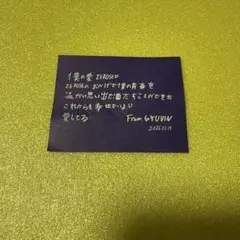 僕の愛 ZEROSE
ZEROSEの おかげで僕の青春を
温かい思い出で満たすことができた
これからも幸せでいよう
愛してる From GYUVIN